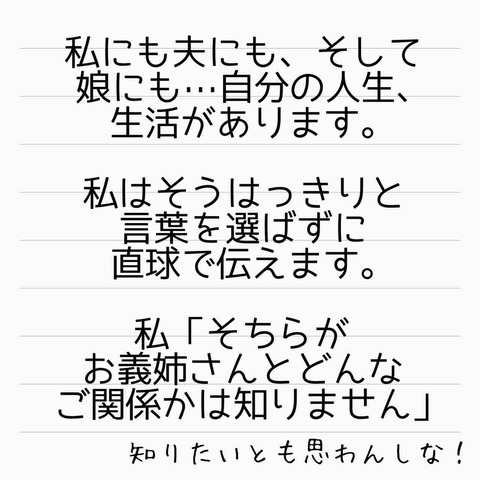 私にも夫にも、そして
娘にも…自分の人生、
生活があります。
私はそうはっきりと
言葉を選ばずに
直球で伝えます。
私「そちらが
お義姉さんとどんな
ご関係かは知りません」
知りたいとも思わんしな！